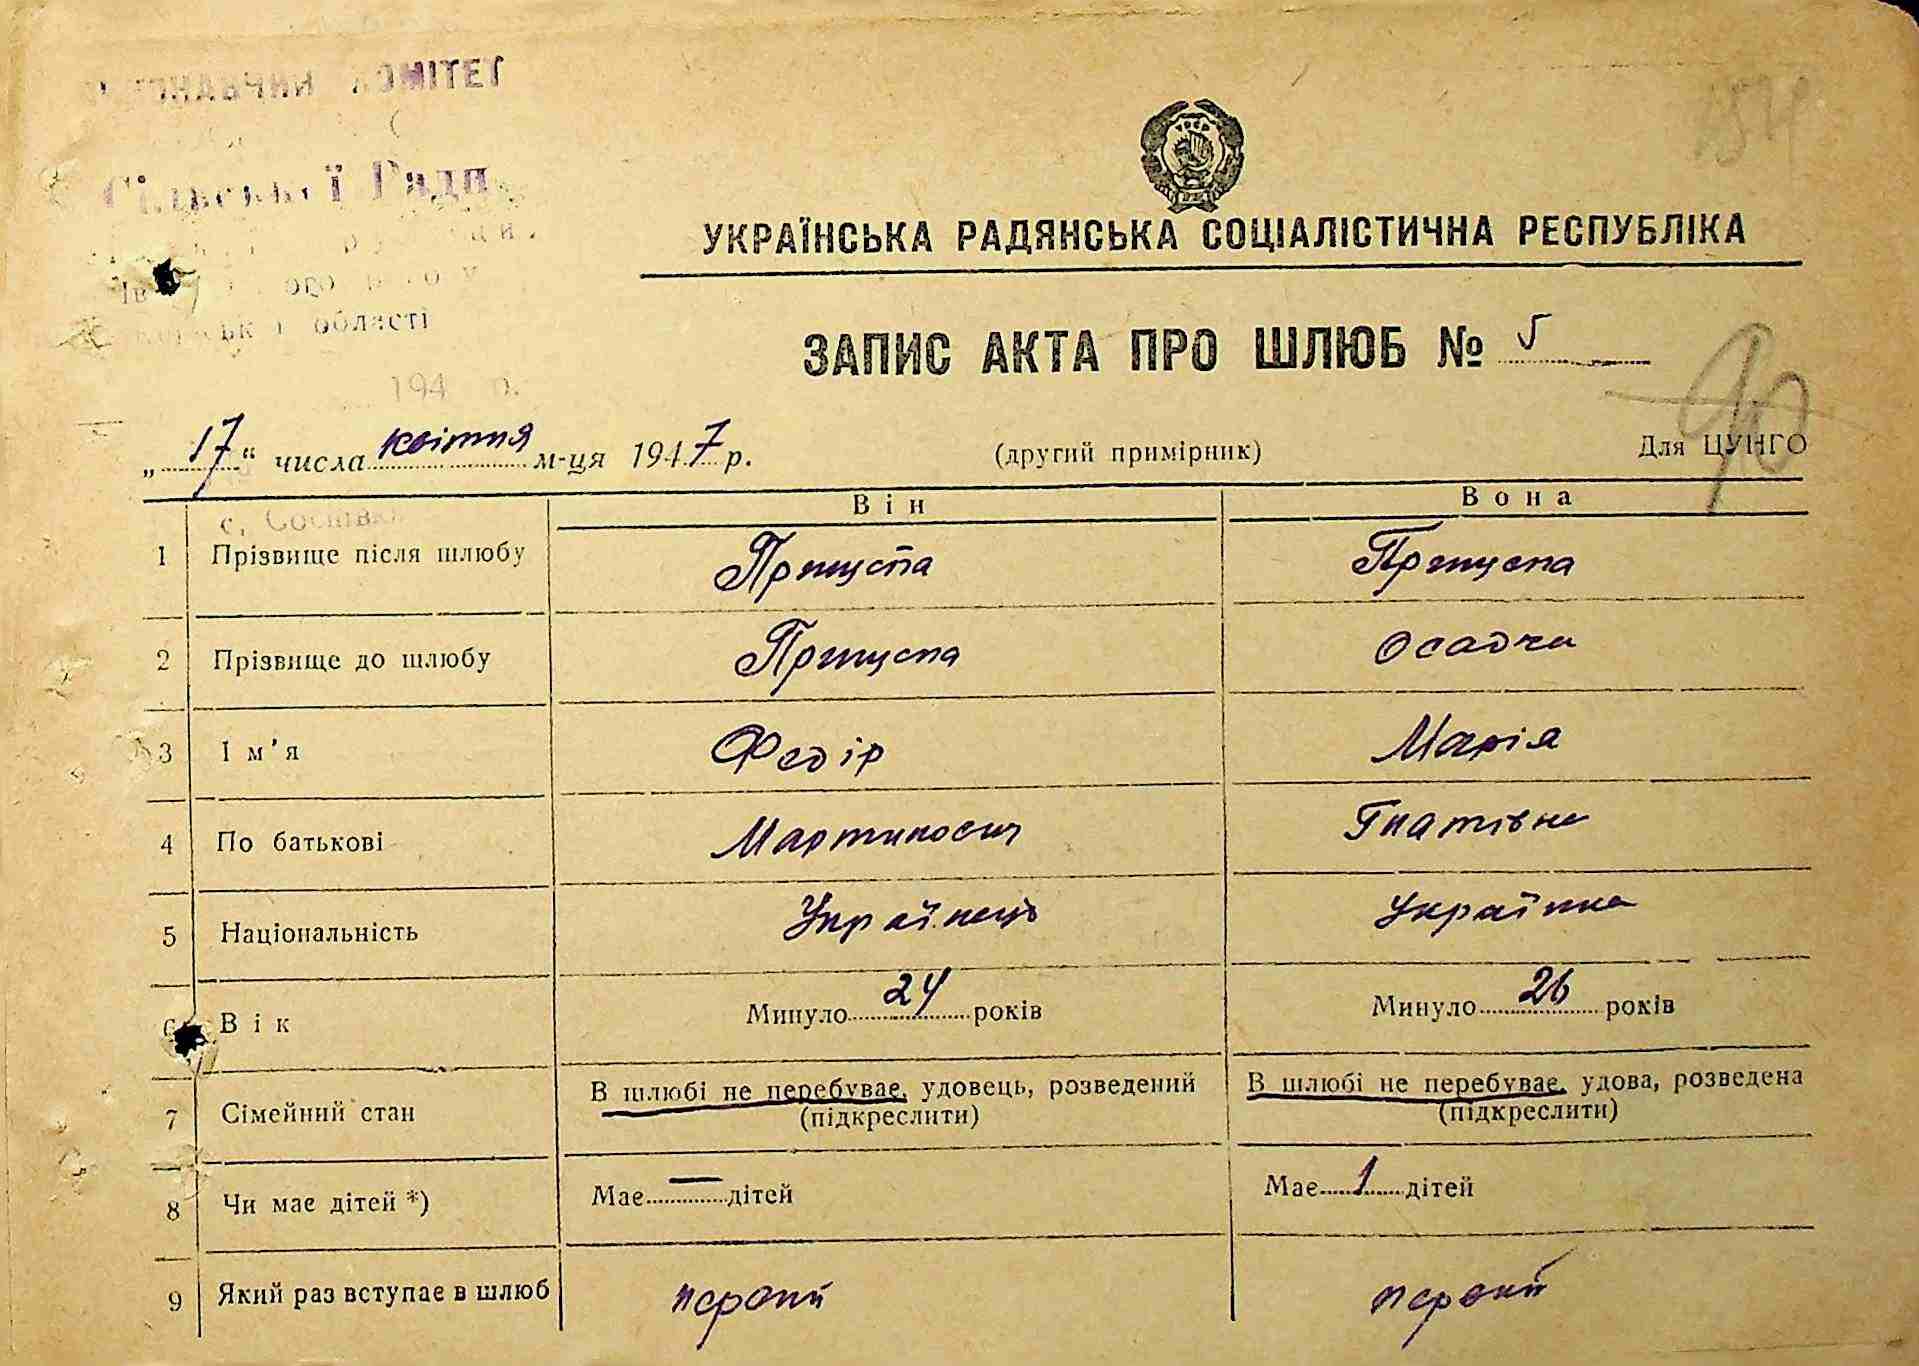 КОМІТЕТ
Сільської Ради
області
194 р.
УКРАЇНСЬКА РАДЯНСЬКА СОЦІАЛІСТИЧНА РЕСПУБЛІКА
ЗАПИС АКТА ПРО ШЛЮБ № 5
„17“ числа квітня м-ця 1947 р. (другий примірник) Для ЦУНГО
Він Вона
с. Соснівка
1 Прізвище після шлюбу Прищепа Прищепа
2 Прізвище до шлюбу Прищепа Осадча
3 Ім'я Федір Марія
4 По батькові Мартинович Гнатівна
5 Національність Українець Українка
6 Вік Минуло 24 років Минуло 26 років
7 Сімейний стан В шлюбі не перебуває, удовець, розведений (підкреслити) В шлюбі не перебуває, удова, розведена (підкреслити)
8 Чи має дітей *) Має — дітей Має 1 дітей
9 Який раз вступає в шлюб первий первий